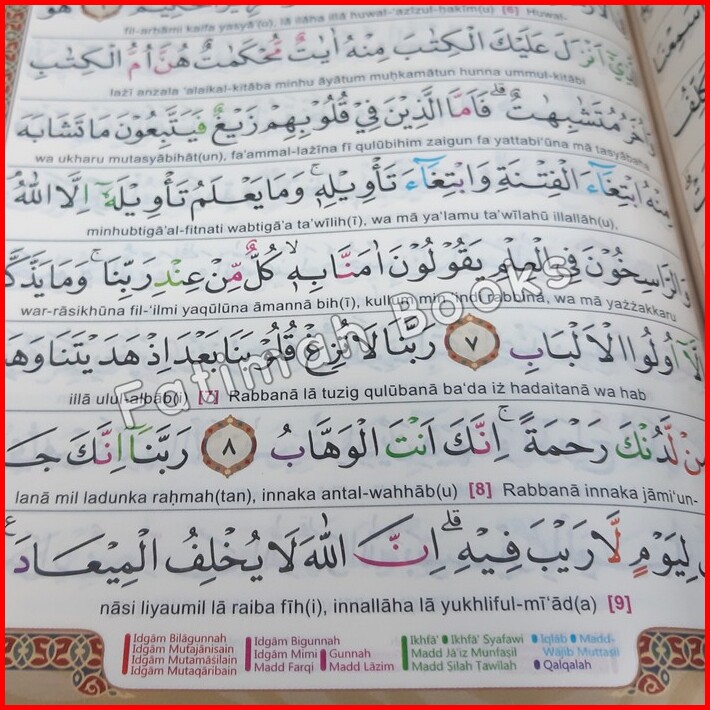 fil-arḥāmi kaifa yasyā'(u), lā ilāha illā huwal-'azīzul-ḥakīm(u) [6] Huwal-
ذِيْٓ اَنْزَلَ عَلَيْكَ الْكِتٰبَ مِنْهُ اٰيٰتٌ مُّحْكَمٰتٌ هُنَّ اُمُّ الْكِتٰبِ
lażī anzala 'alaikal-kitāba minhu āyātum muḥkamātun hunna ummul-kitābi
وَاُخَرُ مُتَشٰبِهٰتٌ ۗ فَاَمَّا الَّذِيْنَ فِيْ قُلُوْبِهِمْ زَيْغٌ فَيَتَّبِعُوْنَ مَا تَشَابَهَ
wa ukharu mutasyābihāt(un), fa'ammal-lażīna fī qulūbihim zaigun fa yattabi'ūna mā tasyābaha
مِنْهُ ابْتِغَاۤءَ الْفِتْنَةِ وَابْتِغَاۤءَ تَأْوِيْلِهٖۚ وَمَا يَعْلَمُ تَأْوِيْلَهٗٓ اِلَّا اللّٰهُ
minhubtigā'al-fitnati wabtigā'a ta'wīlih(ī), wa mā ya'lamu ta'wīlahū illallāh(u),
وَالرَّاسِخُوْنَ فِى الْعِلْمِ يَقُوْلُوْنَ اٰمَنَّا بِهٖۙ كُلٌّ مِّنْ عِنْدِ رَبِّنَاۚ وَمَا يَذَّكَّ
war-rāsikhūna fil-'ilmi yaqūlūna āmannā bih(ī), kullum min 'indi rabbinā, wa mā yażżakkaru
اِلَّآ اُولُوا الْاَلْبَابِ ٧ رَبَّنَا لَا تُزِغْ قُلُوْبَنَا بَعْدَ اِذْ هَدَيْتَنَا وَهَ
illā ulul-albāb(i) [7] Rabbanā lā tuzig qulūbanā ba'da iż hadaitanā wa hab
مِنْ لَّدُنْكَ رَحْمَةًۚ اِنَّكَ اَنْتَ الْوَهَّابُ ٨ رَبَّنَآ اِنَّكَ جَا
lanā mil ladunka raḥmah(tan), innaka antal-wahhāb(u) [8] Rabbanā innaka jāmi'un-
لِيَوْمٍ لَّا رَيْبَ فِيْهِۗ اِنَّ اللّٰهَ لَا يُخْلِفُ الْمِيْعَادَ
nāsi liyaumil lā raiba fīh(i), innallāha lā yukhliful-mī'ād(a) [9]
Idgām Bilāgunnah
Idgām Mutajānisain
Idgām Mutamāsilain
Idgām Mutaqāribain
Idgām Bigunnah
Idgām Mimi Gunnah
Madd Farqi Madd Lāzim
Ikhfā' Ikhfā' Syafawi
Madd Jā'iz Munfaṣil
Madd Silah Tawīlah
Iqlāb Madd Wājib Muttaṣil
Qalqalah
Fatimah Books